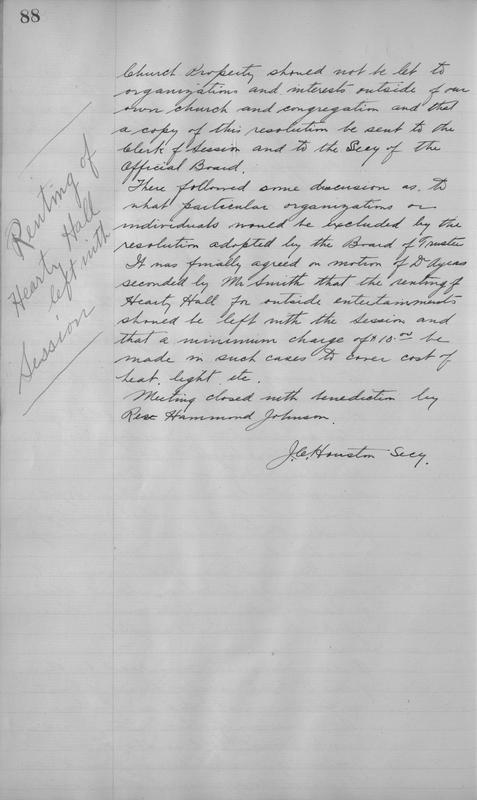 88
Church Property should not be let to
organizations and interests outside of our
own church and congregation and that
a copy of this resolution be sent to the
Clerk of Session and to the Secy of the
Official Board.
There followed some discussion as to
what particular organizations or
individuals would be excluded by the
resolution adopted by the Board of Trustees
It was finally agreed on motion of Dr Ayers
seconded by Mr Smith that the renting of
Hearty Hall for outside entertainments
should be left with the Session and
that a minimum charge of $10.00 be
made in such cases to cover cost of
heat, light etc.
Meeting closed with benediction by
Rev Hammond Johnson.
J.C. Houston Secy.
Renting of
Hearty Hall
left with
Session